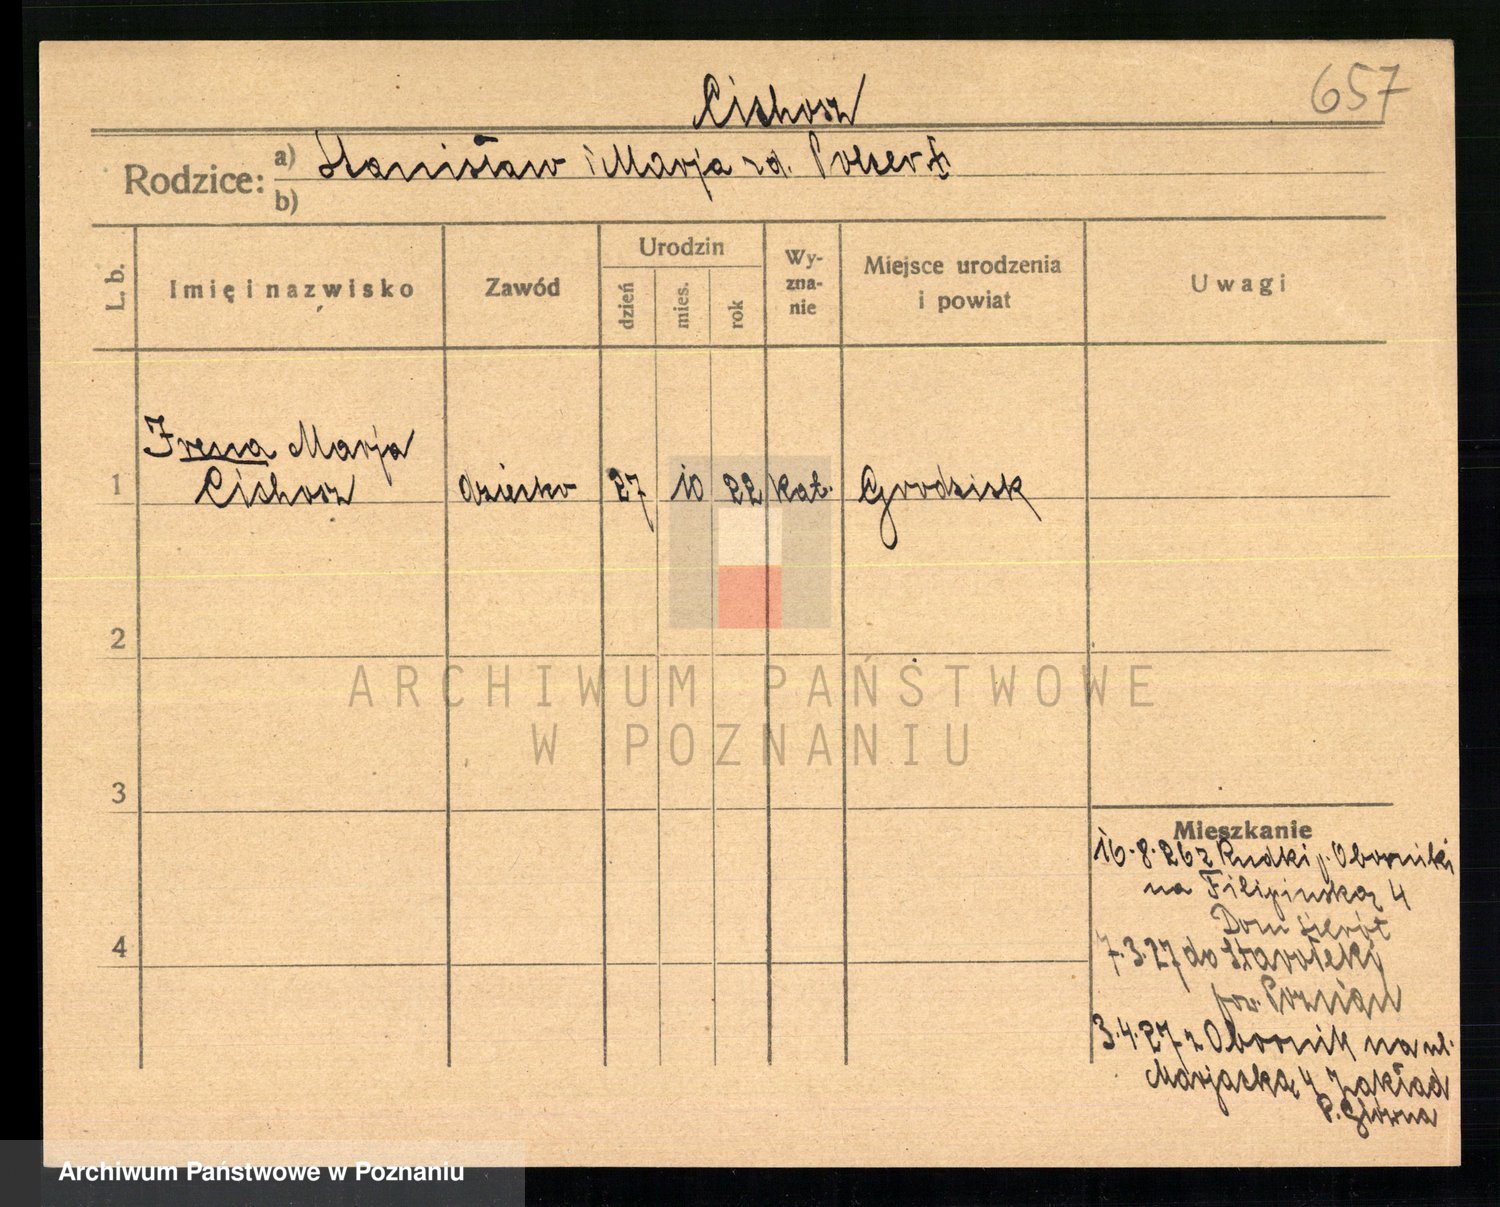 657
Cichosz
Rodzice: a) Stanisław i Marja zd.
b)
L. b.
Imię i nazwisko
Zawód
Urodzin
dzień
mies.
rok
Wy-
zna-
nie
Miejsce urodzenia
i powiat
Uwagi
Irena Marja
1 Cichosz dziecko 27 10 22 kat. Grodzisk
2
3
4
ARCHIWUM PAŃSTWOWE
W POZNANIU
Mieszkanie
16.8.26 z Rudki p. Oborniki
na Filipińską 4
Dom sierót
7.3.27 do Starołęki
pow. Poznań
3.4.27 z Obornik na ul.
Marjacką 4 Zakład
P. Główna
Archiwum Państwowe w Poznaniu